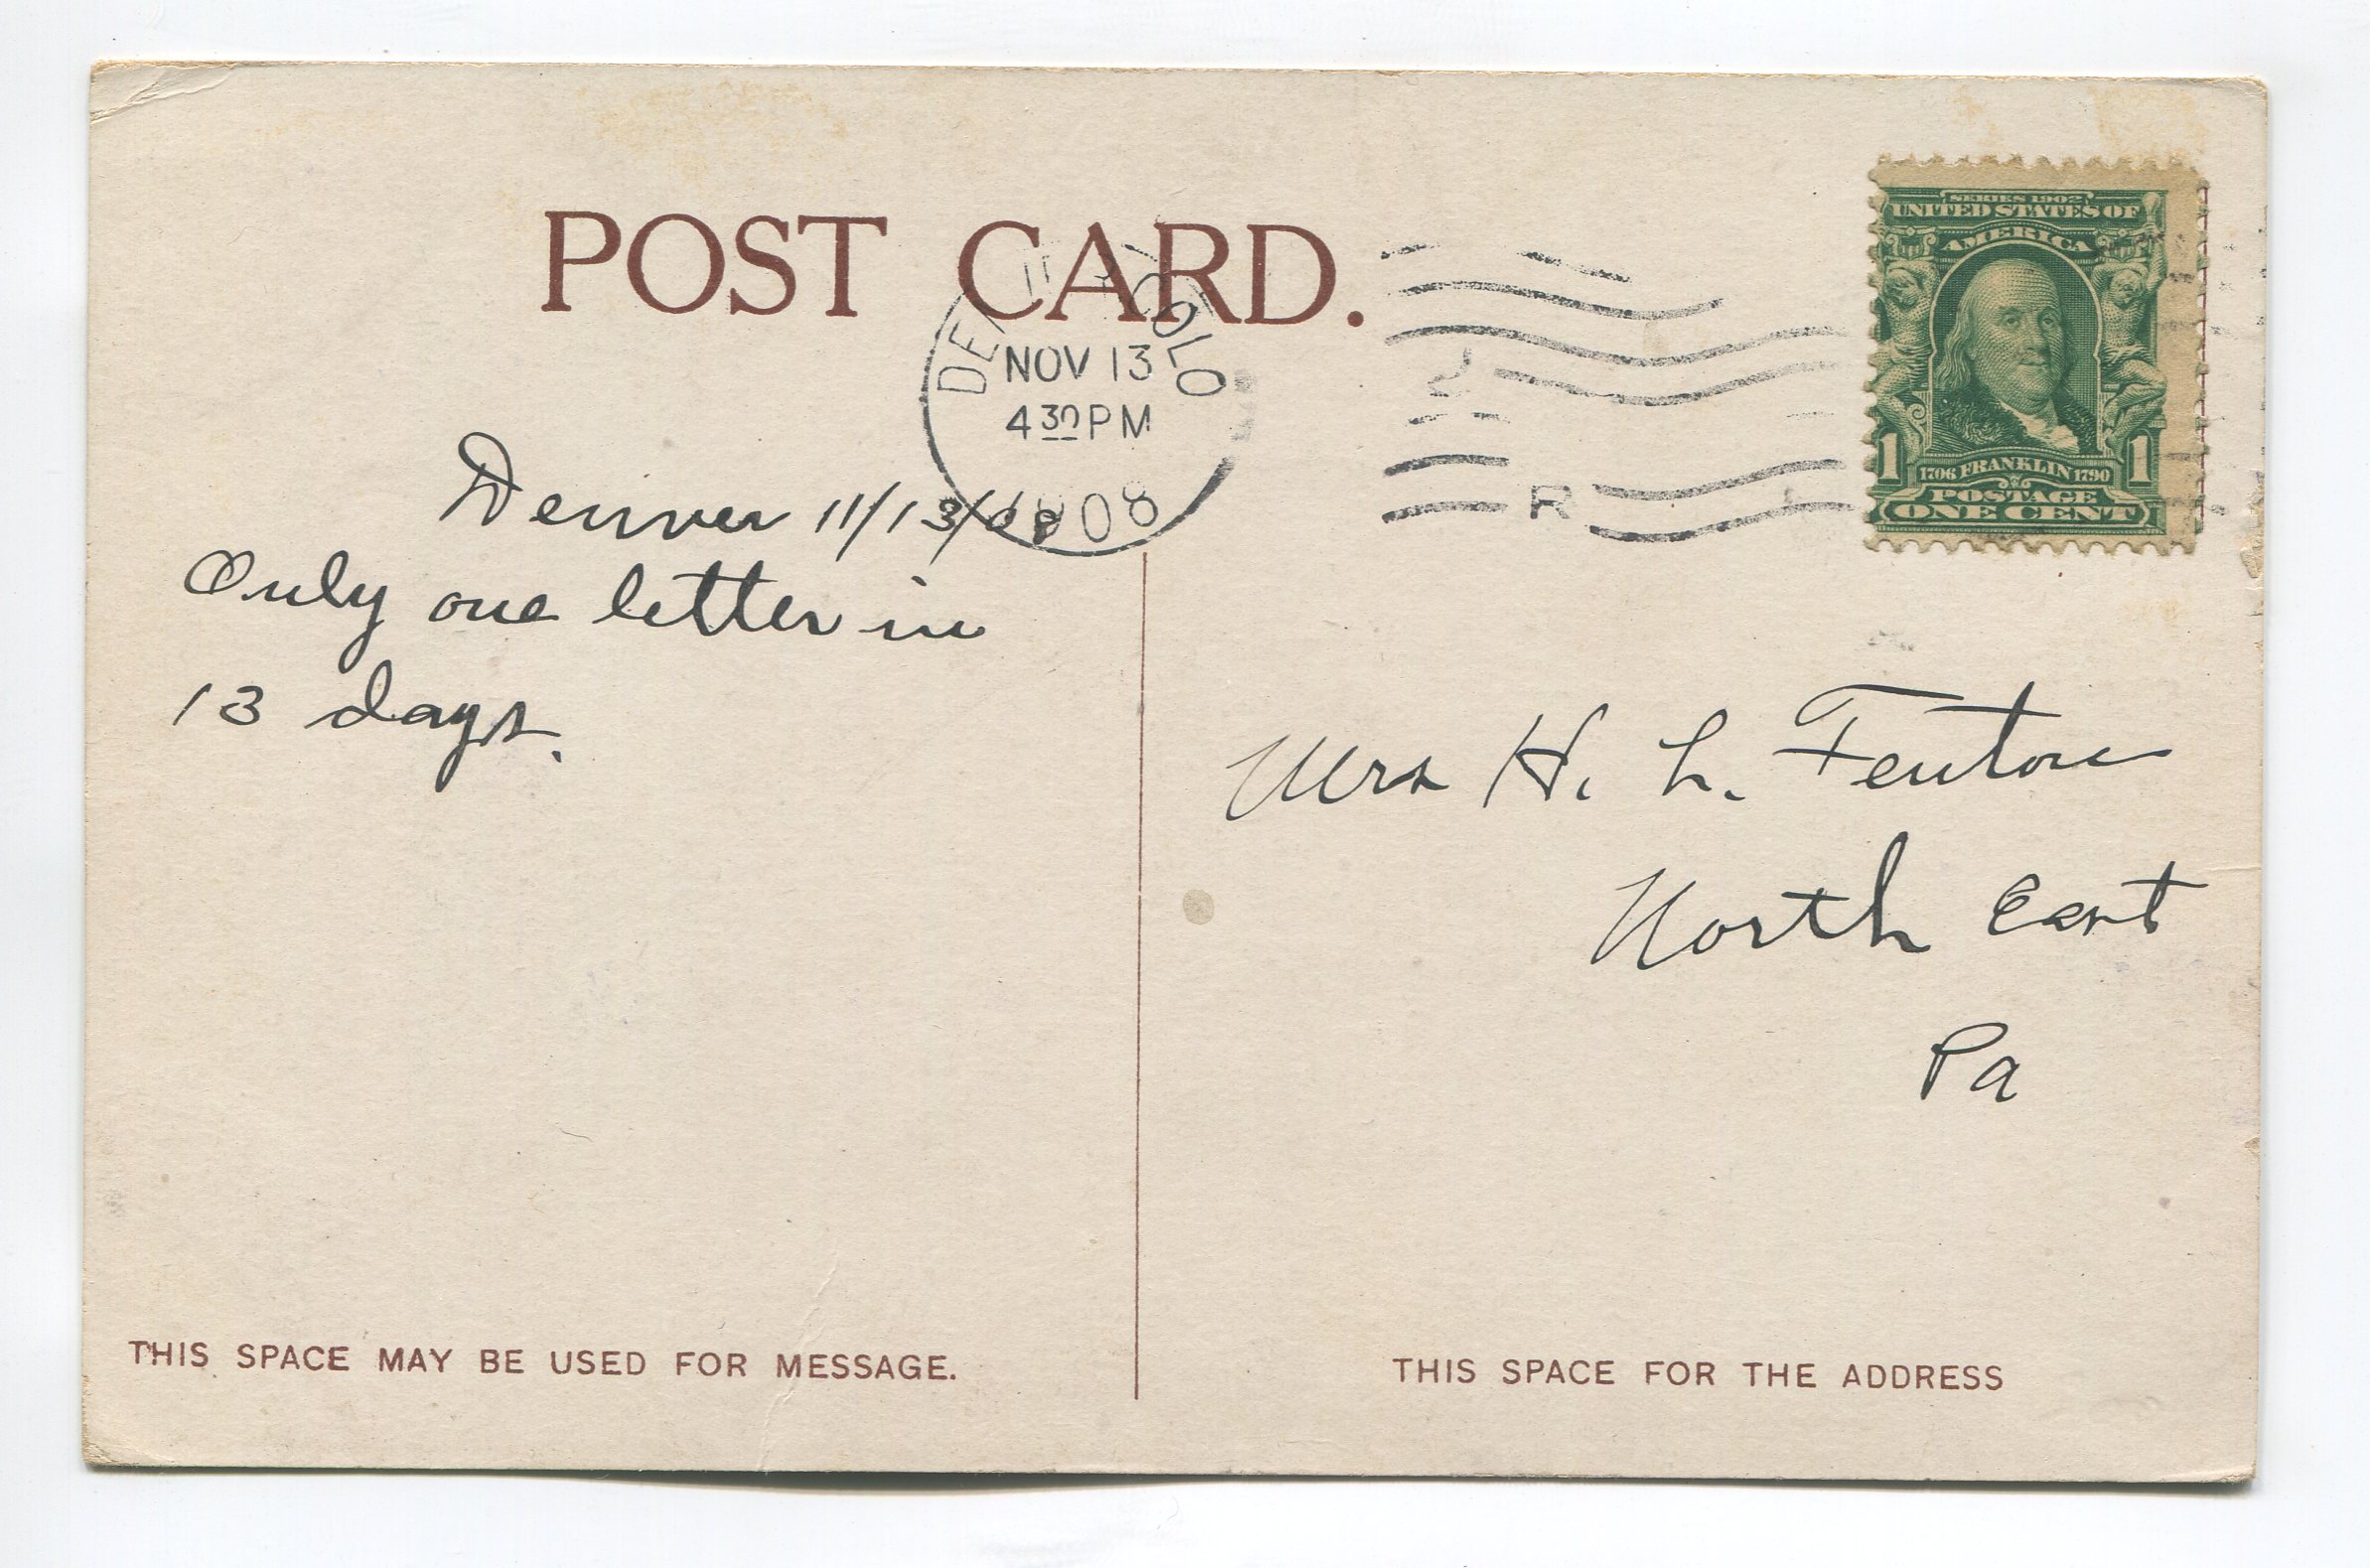 POST CARD.
COLO
NOV 13
4 30 PM
1908
R
SERIES 1902
UNITED STATES OF
AMERICA
1 1
1706 FRANKLIN 1790
POSTAGE
ONE CENT
Denver 11/13/08
Only one letter in
13 days.
Mrs H. L. Fenton
North East
Pa
THIS SPACE MAY BE USED FOR MESSAGE.
THIS SPACE FOR THE ADDRESS